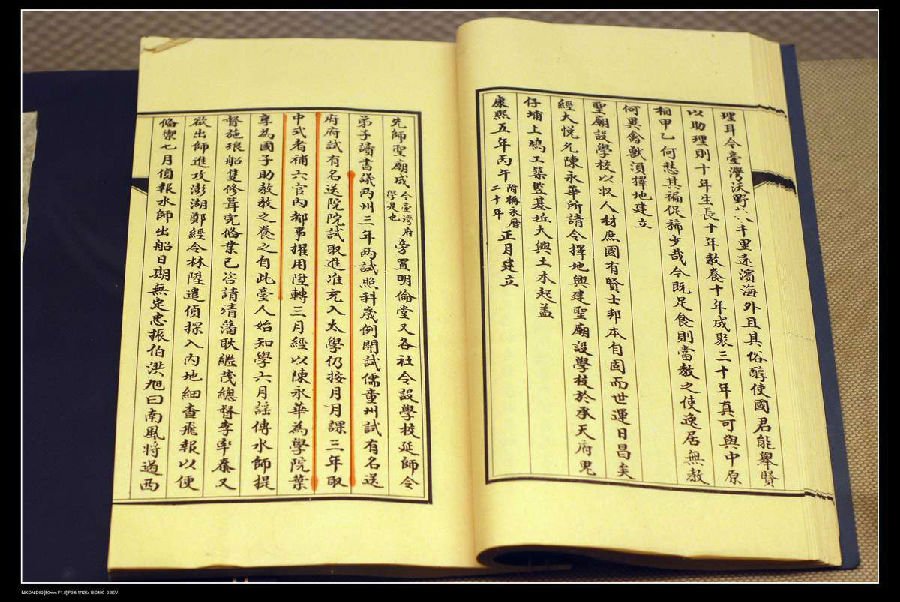 理耳今臺灣沃野千里遠濱海外且其俗醇使國君能舉賢
以助理則十年生長十年教養十年成聚三十年真可與中原
相甲乙何愁其褊促稀少哉今既足食則當教之使逸居無教
何異禽獸須擇地建立
聖廟設學校以收人材庶國有賢士邦本自固而世運日昌矣
經大悅允陳永華所請令擇地興建聖廟設學校於承天府鬼
仔埔上鳩工築豎基址大興土木起蓋
康熙五年丙午附稱永曆二十年正月建立
先師聖廟成今臺灣府學是也旁置明倫堂又各社令設學校延師令
弟子讀書議兩州三年兩試照科歲例開試儒童州試有名送
府府試有名送院院試取進准充入太學仍按月月課三年取
中式者補六官內都事擢用陞轉三月經以陳永華為學院葉
亨為國子助教教之養之自此臺人始知學六月謠傳水師提
督施琅船隻修葺完備業已咨請凊蕩耿繼茂總督李率泰又
欲出師進攻澎湖鄭經令林陞遣偵探入內地細查飛報以便
備禦七月偵報水師出船日期無定忠振伯洪旭曰南風將過西